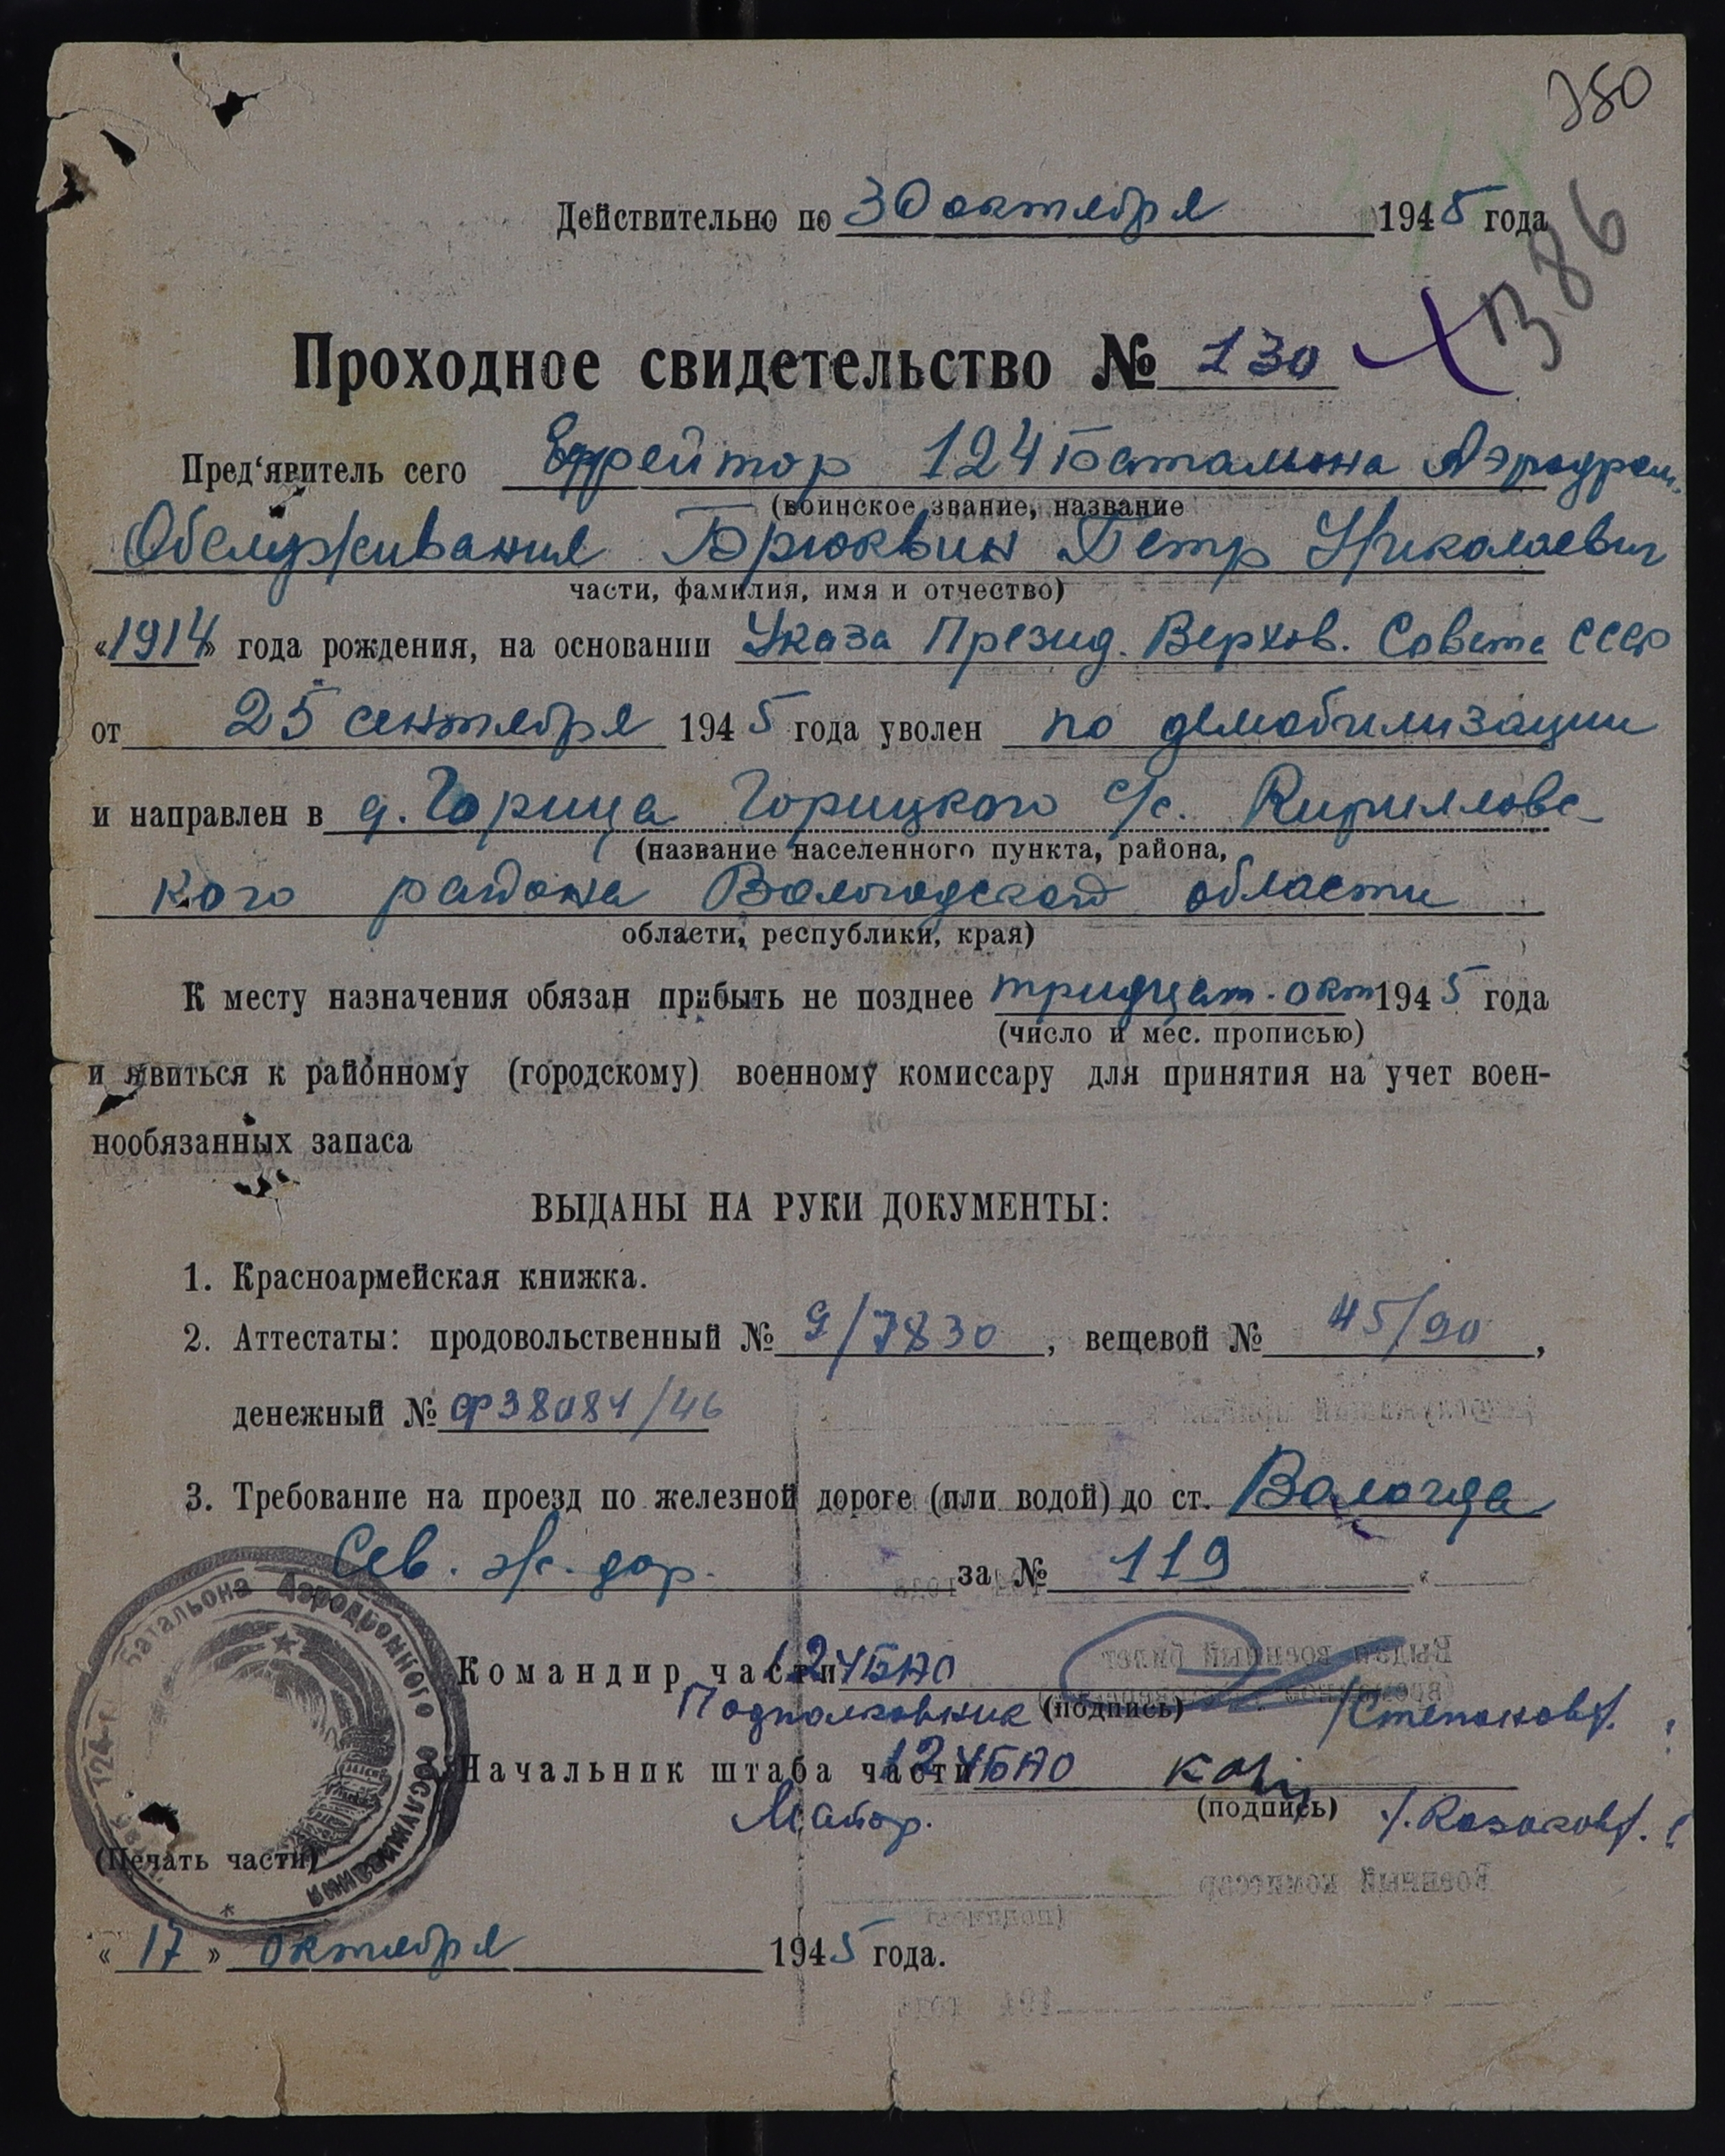 380
386
Действительно по 30 октября 1945 года
Проходное свидетельство № 130
Пред‘явитель сего Ефрейтор 124 Баталиона Аэродром.
(воинское звание, название
Обслуживания Брюквин Петр Николаевич
части, фамилия, имя и отчество)
«1914» года рождения, на основании Указа Презид. Верхов. Совета СССР
от 25 сентября 1945 года уволен по демобилизации
и направлен в д. Горица Горицкого с/с. Кирилловс-
(название населенного пункта, района,
кого района Вологодской области
области, республики, края)
К месту назначения обязан прибыть не позднее тридцат. окт 1945 года
(число и мес. прописью)
и явиться к районному (городскому) военному комиссару для принятия на учет воен-
нообязанных запаса
ВЫДАНЫ НА РУКИ ДОКУМЕНТЫ:
1. Красноармейская книжка.
2. Аттестаты: продовольственный № 9/7830, вещевой № 45/90,
денежный № Ф38081/46
3. Требование на проезд по железной дороге (или водой) до ст. Вологда
Сев. ж/с. дор. за № 119
Командир части 124 БАО
Подполковник (подпись) /Степанов/.
Начальник штаба части 124 БАО
Майор. (подпись) /.Казаков/.
124 Батальона Аэродромного обслуживания
(Печать части)
«17» октября 1945 года.